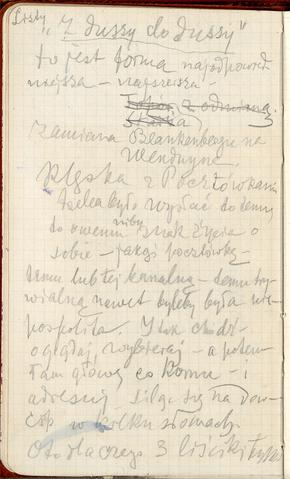 Listy
"Z duszy do duszy"
to jest forma najodpowied
niejsza – najszersza.
z odmianą
Zamiana Blankenberge na
Wenduyne
Klęska z Pocztówkami
trzeba było wysłać do temu
do owemu niby znak życia o
sobie – jakąś pocztówkę –
temu lub tej banalną – temu try-
wialną nawet byleby była nie
pospolita. I tak chodź –
oglądaj, wybieraj – a potem
łam głowę co komu – i
adresuj – siląc się na dow-
cip w kilku słowach.
Oto dlaczego 3 liściki tylko